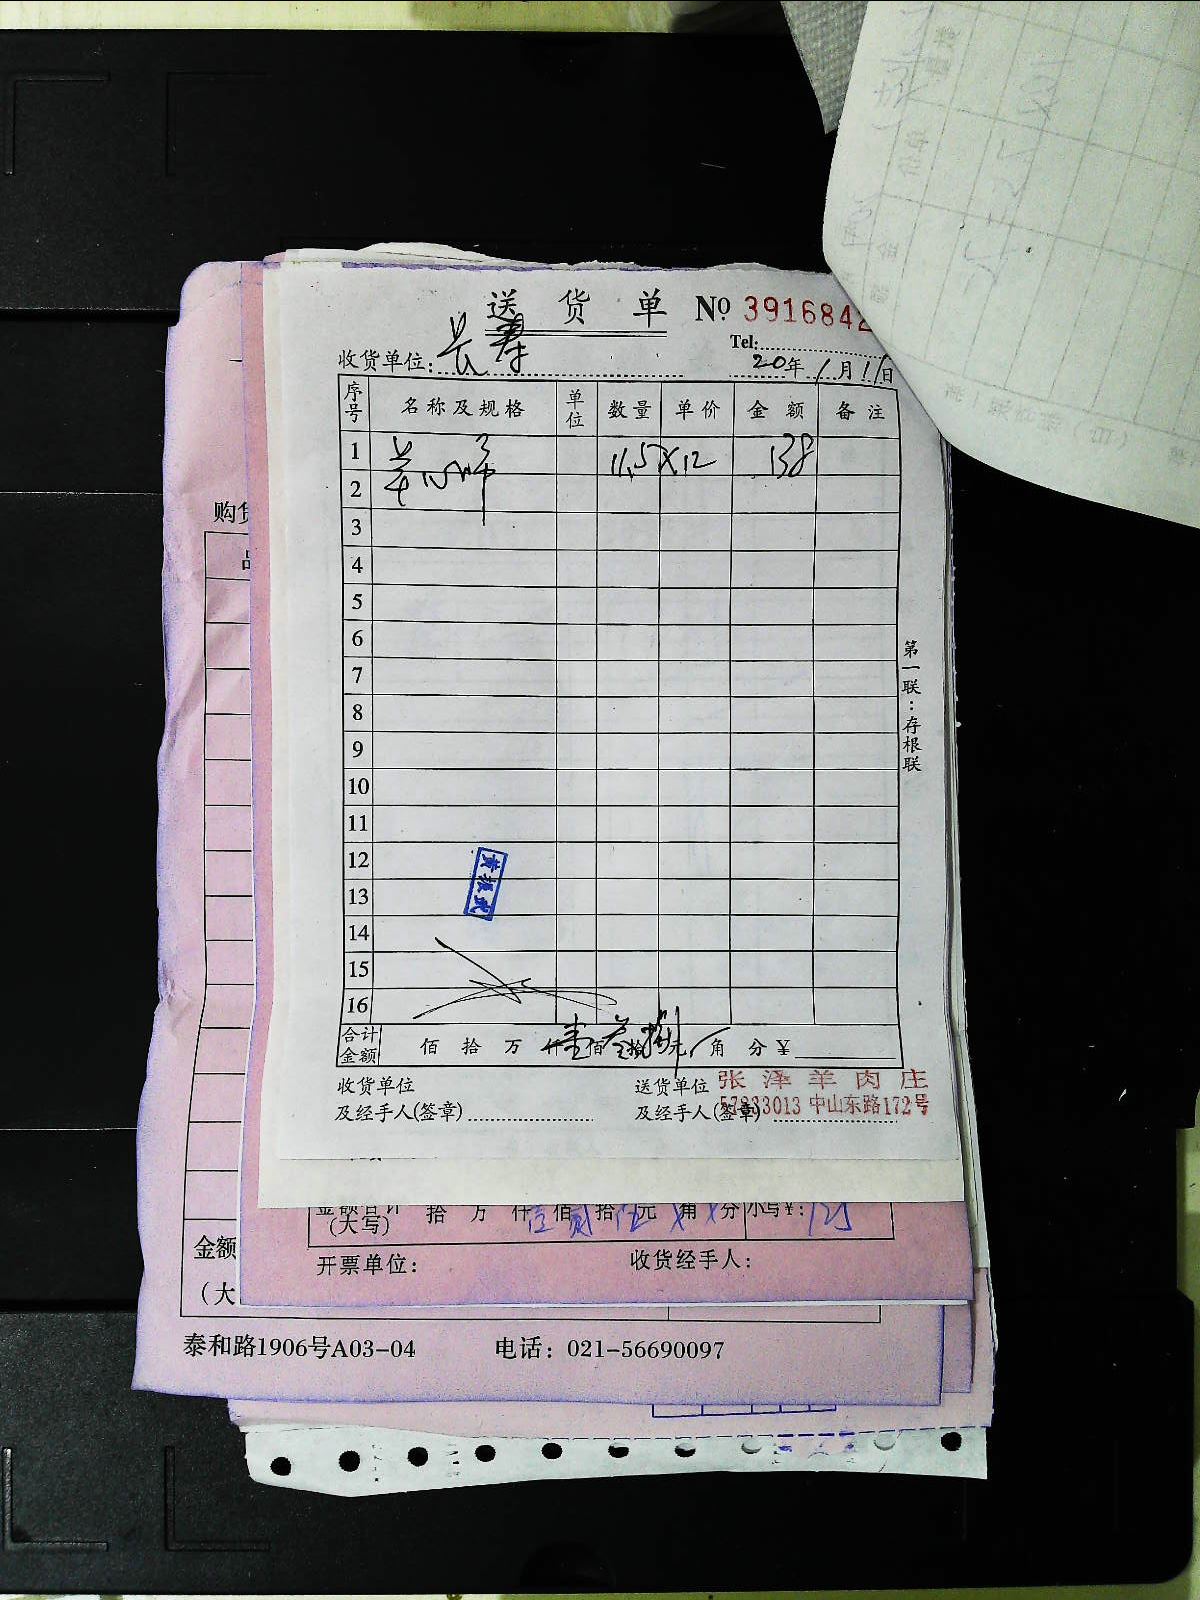 送货单 № 3916842
Tel:
收货单位: 长寿 20年1月11日
序号 名称及规格 单位 数量 单价 金额 备注
1 11.5×12 138
2
3
4
5
6
7
8
9
10
11
12
13
14
15
16
第一联:存根联
合计金额 佰 拾 万 仟 壹佰 叁拾 捌元 角 分 ¥
收货单位 送货单位 张泽羊肉庄
及经手人(签章) 及经手人(签章) 57833013 中山东路172号
购货
品
金额合计(大写) 拾 万 仟 壹佰 贰拾 伍元 ×角 ×分 小写¥: 125
开票单位: 收货经手人:
金额
(大
泰和路1906号A03-04 电话: 021-56690097